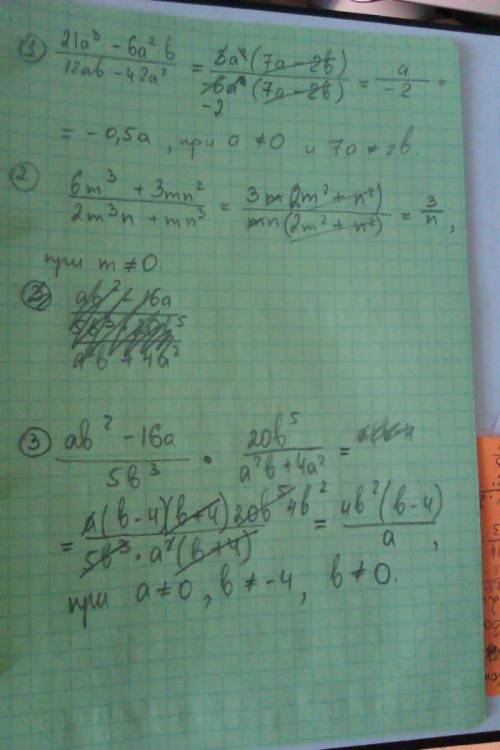 ① (21a³ - 6a²b)/(12ab - 42a²) = (3a²(7a - 2b))/(-6a(7a - 2b)) -2 = a/-2 =
= -0,5a, при a ≠ 0 и 7a ≠ 2b.
② (6m³ + 3mn²)/(2m³n + mn³) = (3m(2m² + n²))/(mn(2m² + n²)) = 3/n,
при m ≠ 0.
③ (ab² - 16a)/(5b³) · (20b⁵)/(a²b + 4a²) =
= (a(b-4)(b+4) 20b⁵ 4b²)/(5b³ · a²(b+4)) = (4b²(b-4))/a,
при a ≠ 0, b ≠ -4, b ≠ 0.